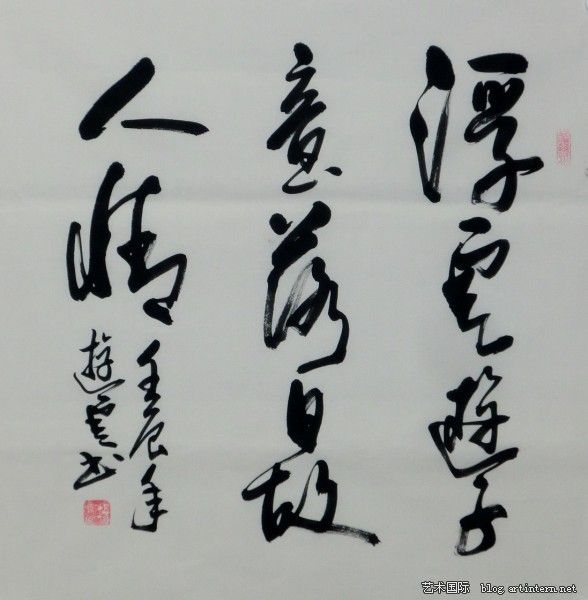 浮雲遊子
意落日故
人情
壬辰年
遊雲書
艺术国际 blog.artintern.net